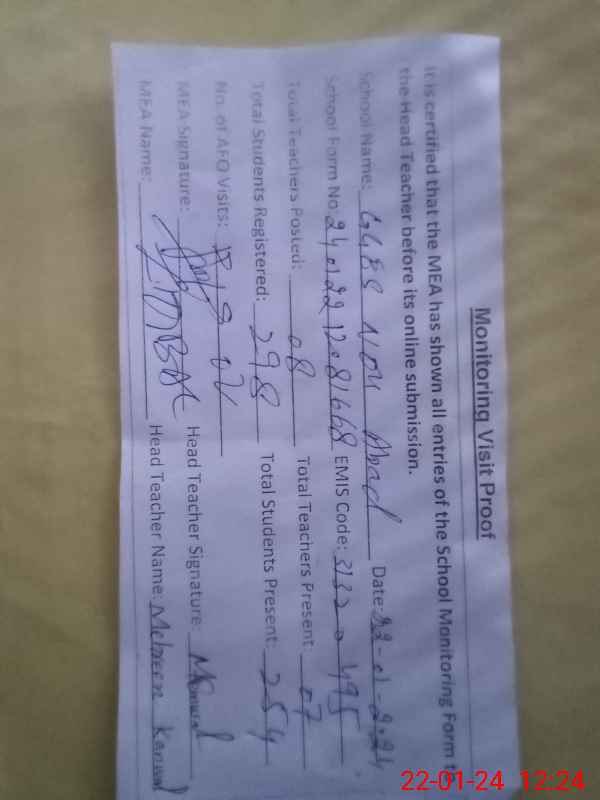 Monitoring Visit Proof
It is certified that the MEA has shown all entries of the School Monitoring Form to
the Head Teacher before its online submission.
School Name: GGES Nou Abad Date: 22-01-2024
School Form No: 24012212081668 EMIS Code: 31320495
Total Teachers Posted: 08 Total Teachers Present: 07
Total Students Registered: 298 Total Students Present: 254
No. of AEO Visits: 02
MEA Signature: Head Teacher Signature:
MEA Name: Head Teacher Name: Mehreen Kanwal
22-01-24 12:24